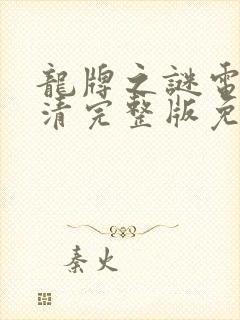 龍牌之謎電
清完整版免
秦火